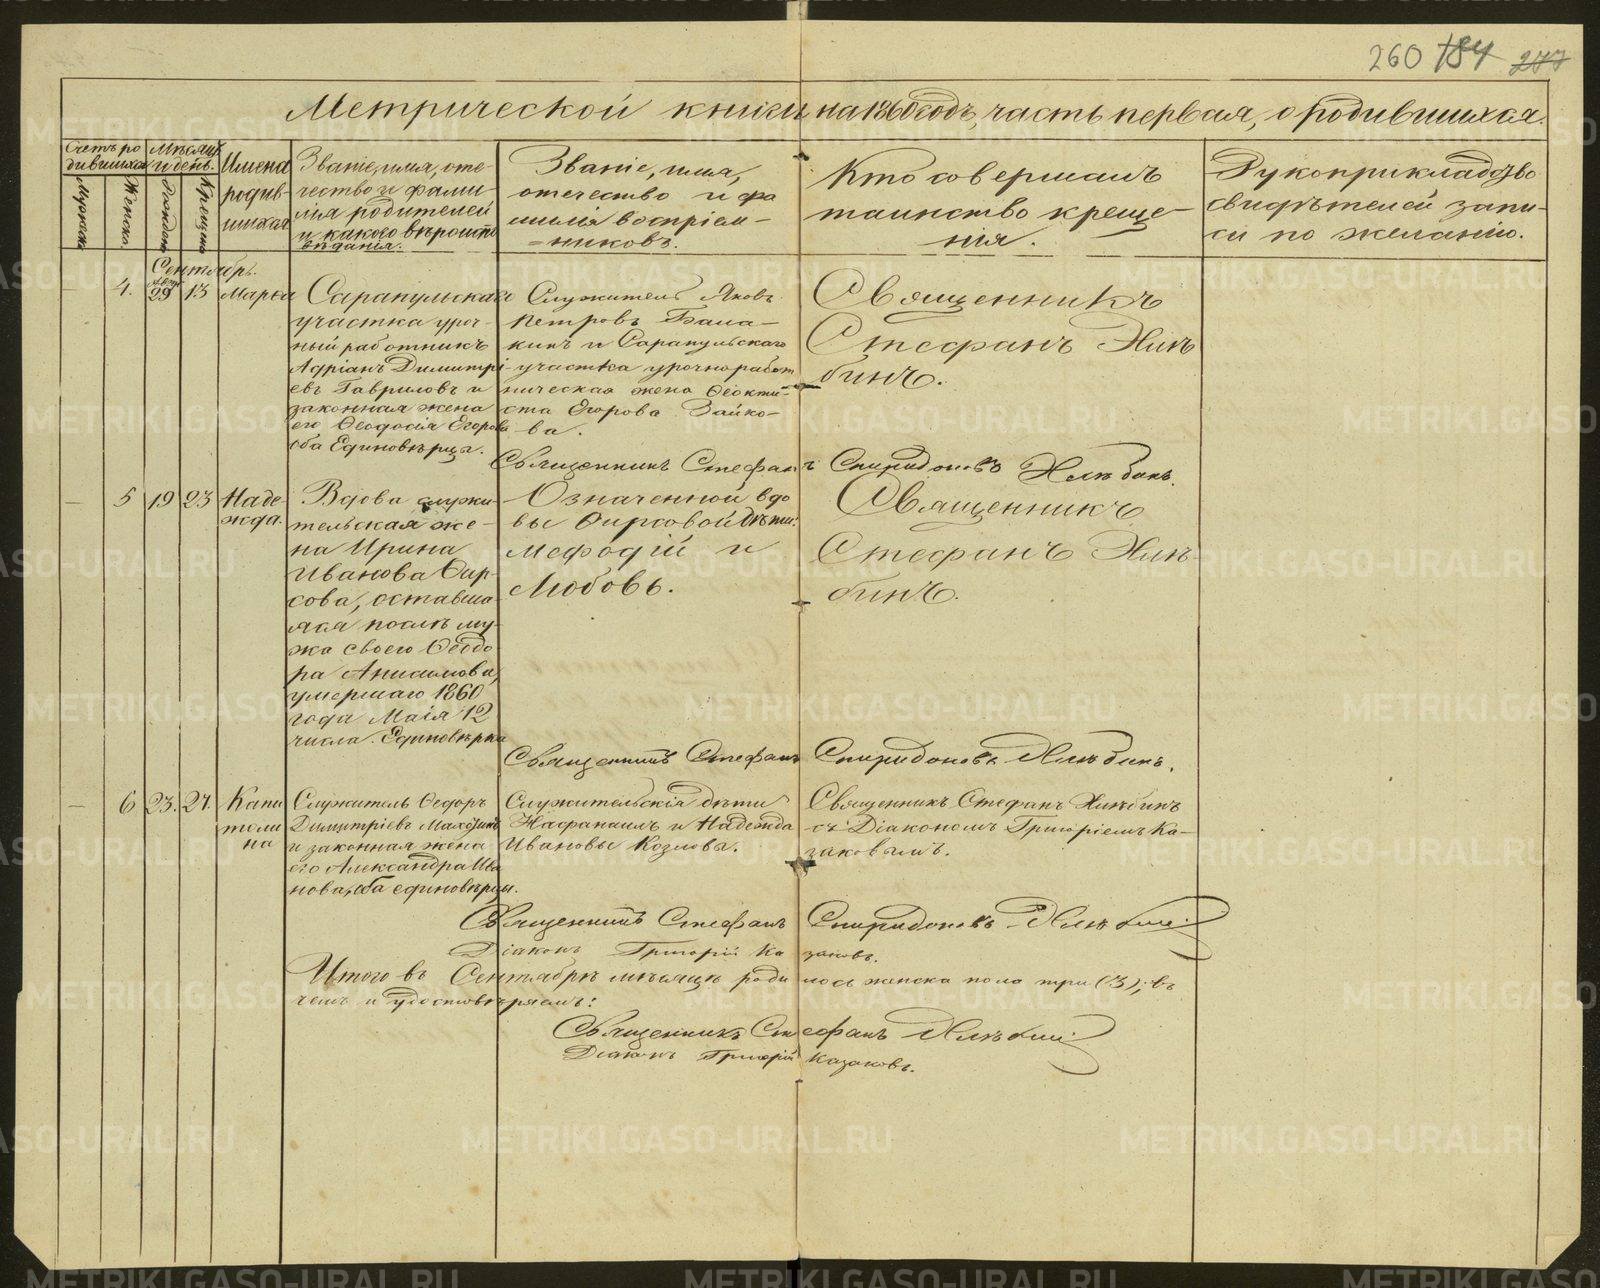 260 184 277
Метрической книги на 1860 годъ, часть первая, о родившихся.
Счетъ ро
дившихся
Мужска
Женска
Мѣсяцъ
и день.
Рожден
Крещен
Имена
родив-
шихся
Званіе, имя, оте-
чество и фами-
лія родителей
и какого вѣроиспо
вѣданія.
Званіе, имя,
отечество и фа
милія воспріем-
никовъ.
Кто совершалъ
таинство креще-
нія.
Рукоприкладство
свидѣтелей запи-
си по желанію.
Сентябрь.
— 4. Авгу 29 13 Марья
Сарапульскаго
участка уроч-
ный работникъ
Адріанъ Димитрі-
евъ Гавриловъ и
законная жена
его Ѳеодосія Егорова
оба Единовѣрцы.
Служитель Яковъ
Петровъ Бала-
кинъ и Сарапульскаго
участка урочноработ
ническая жена Ѳеокти-
ста Егорова Зайко-
ва.
Священникъ
Стефанъ Хлѣ
бинъ.
Священникъ Стефанъ Спиридоновъ Хлѣбинъ.
— 5 19 23 Наде-
жда.
Вдова служи-
тельская же-
на Ирина
Иванова Фир-
сова, оставша-
яся послѣ му-
жа своего Ѳеодо
ра Анисимова,
умершаго 1860
года Маія 12
числа. Единовѣрка
Означенной вдо
вы Фирсовой дѣти:
Меѳодій и
Любовь.
Священникъ
Стефанъ Хлѣ-
бинъ.
Священникъ Стефанъ Спиридоновъ Хлѣбинъ.
— 6 23. 27. Капи
толи
на
Служитель Ѳедоръ
Димитріевъ
и законная жена
его Александра Ива
нова, оба единовѣрцы.
Служительскія дѣти
Наѳанаилъ и Надежда
Ивановы Козловы.
Священникъ Стефанъ Хлѣбинъ
съ Діакономъ Григоріемъ Ка-
заковымъ.
Священникъ Стефанъ Спиридоновъ Хлѣбинъ
Діаконъ Григорій Казаковъ.
Итого въ Сентябрѣ мѣсяцѣ родилось женска пола три (3); въ
чемъ и удостовѣряемъ:
Священникъ Стефанъ Хлѣбинъ
Діаконъ Григорій Казаковъ.
METRIKI.GASO-URAL.RU